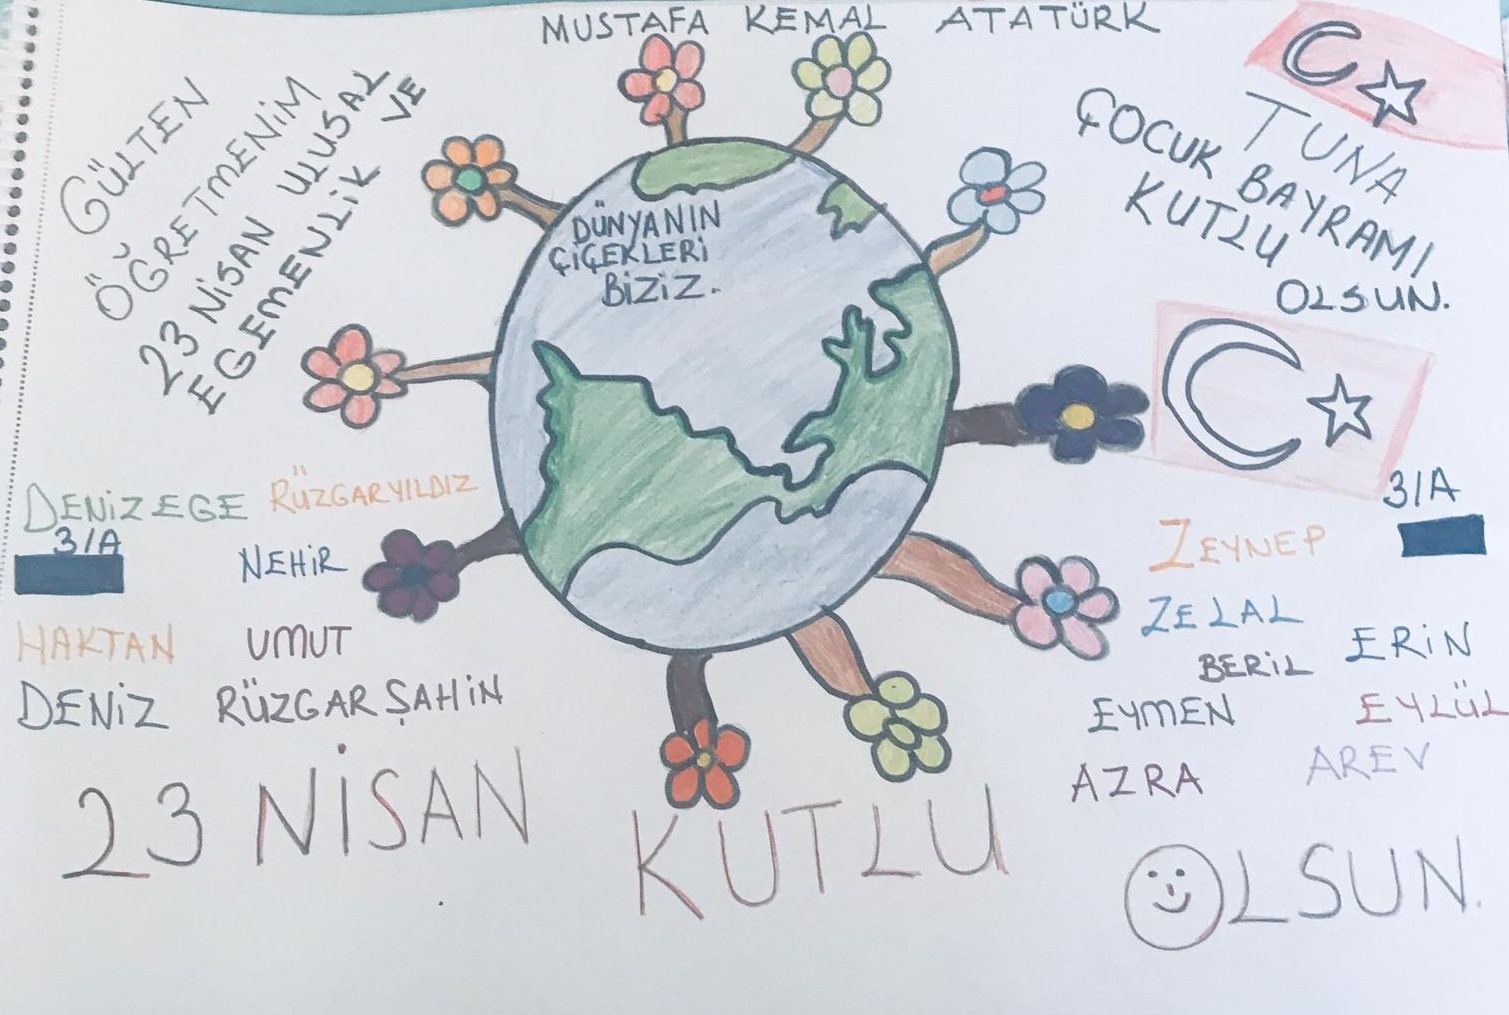 MUSTAFA KEMAL ATATÜRK
GÜLTEN
ÖĞRETMENİM
23 NİSAN ULUSAL
EGEMENLİK VE
TUNA
ÇOCUK BAYRAMI
KUTLU
OLSUN.
DÜNYANIN
ÇİÇEKLERİ
BİZİZ.
DENİZ EGE
RÜZGAR YILDIZ
3/A
NEHİR
HAKTAN
UMUT
DENİZ
RÜZGAR ŞAHİN
3/A
ZEYNEP
ZELAL
ERİN
BERİL
EYMEN
EYLÜL
AZRA
AREV
23 NİSAN KUTLU OLSUN.